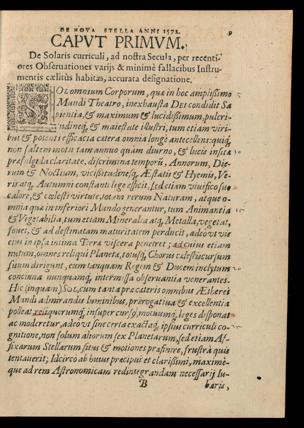 DE NOVA STELLA ANNI 1572. 9
CAPVT PRIMVM.
De Solaris curriculi, ad nostra Secula, per recenti-
ores Obseruationes varijs & minimè fallacibus Instru-
mentis cælitùs habitas, accurata designatione.
SOL omnium Corporum, quæ in hoc amplissimo
Mundi Theatro, inexhausta DEI condidit Sa
pientia, & maximum & lucidissimum, pulcri-
tudineq́, & maiestate illustri, tum etiam viri-
bus & potenti efficacia cætera omnia longè antecellens: quiq́,
non saltem motu tam annuo quàm diurno, & lucis insita
præfulgida claritate, discrimina temporũ, Annorum, Die-
rum & Noctium, vicissitudinesq́, Æstatis & Hyemis, Ve-
ris atq́, Autumni constanti lege efficit, sed etiam viuifico suo
calore, & cælesti virtute, totam rerum Naturam, atque o-
mnia quæ in inferiori Mundo generantur, tum Animantia
& Vegetabilia, tum etiam Mineralia atq́, Metalla, vegetat,
fouet, & ad destinatam maturitatem perducit, adeò vt vis
eius in ipsa intima Terræ viscera penetret; ad cuius etiam
nutum, omnes reliqui Planetæ, totusq́, Chorus cælestis cursus
suum dirigunt, eum tanquam Regem & Ducem inclytum
continua nunquamq́, intermissa obseruantia venerantes.
Hic (inquam) Sol, cum tanta præ cæteris omnibus Ætherei
Mundi admirandis luminibus, prærogatiua & excellentia
polleat, reliquorumq́, insuper cursũ, motuumq́, leges disponat
ac moderetur, adeò vt sine certa exactaq́, ipsius curriculi co-
gnitione, non solùm aliorum sex Planetarum, sed etiam Af-
fixarum Stellarum situs & motiones præfinire, frustrà quis
tentauerit; Idcircò ab huius præcipui et clarissimi, maximè-
que ad rem Astronomicam redintegrandam necessarij Lu-
B baris,